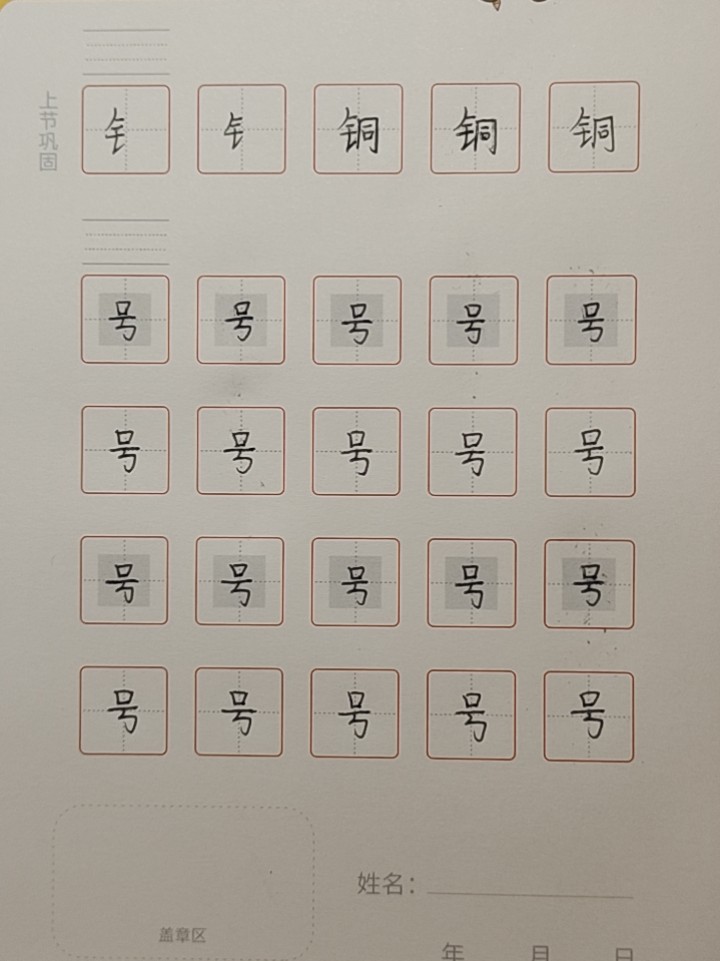 上节巩固
钅 钅 铜 铜 铜
号 号 号 号 号
号 号 号 号 号
号 号 号 号 号
号 号 号 号 号
姓名：
盖章区
年 月 日